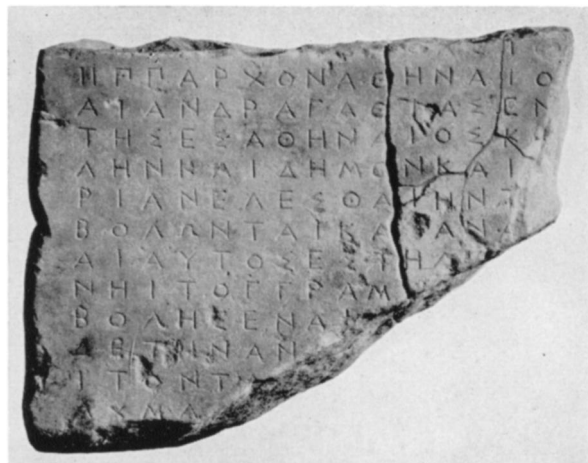 ΠΠΑΡΧΟΝΑΘΗΝΑΙΟ
ΑΙΑΝΔΡΑΓΑΘΙΑΣΕΝ
ΤΗΣΕΣΑΘΗΝΑΙΟΣΚ
ΛΗΝΚΑΙΔΗΜΟΝΚΑΙ
ΡΙΑΝΕΛΕΣΘΑΙΗΝΤ
ΒΟΛΩΝΤΑΙΚΑΙΑΝΑ
ΑΙΑΥΤΟΣΕΣΤΗΛ
ΝΗΙΤΟΓΓΡΑΜ
ΒΟΛΗΣΕΝΑ
ΔΕΤΗΝΑΝ
ΙΤΟΝΤ
ΥΜΑ